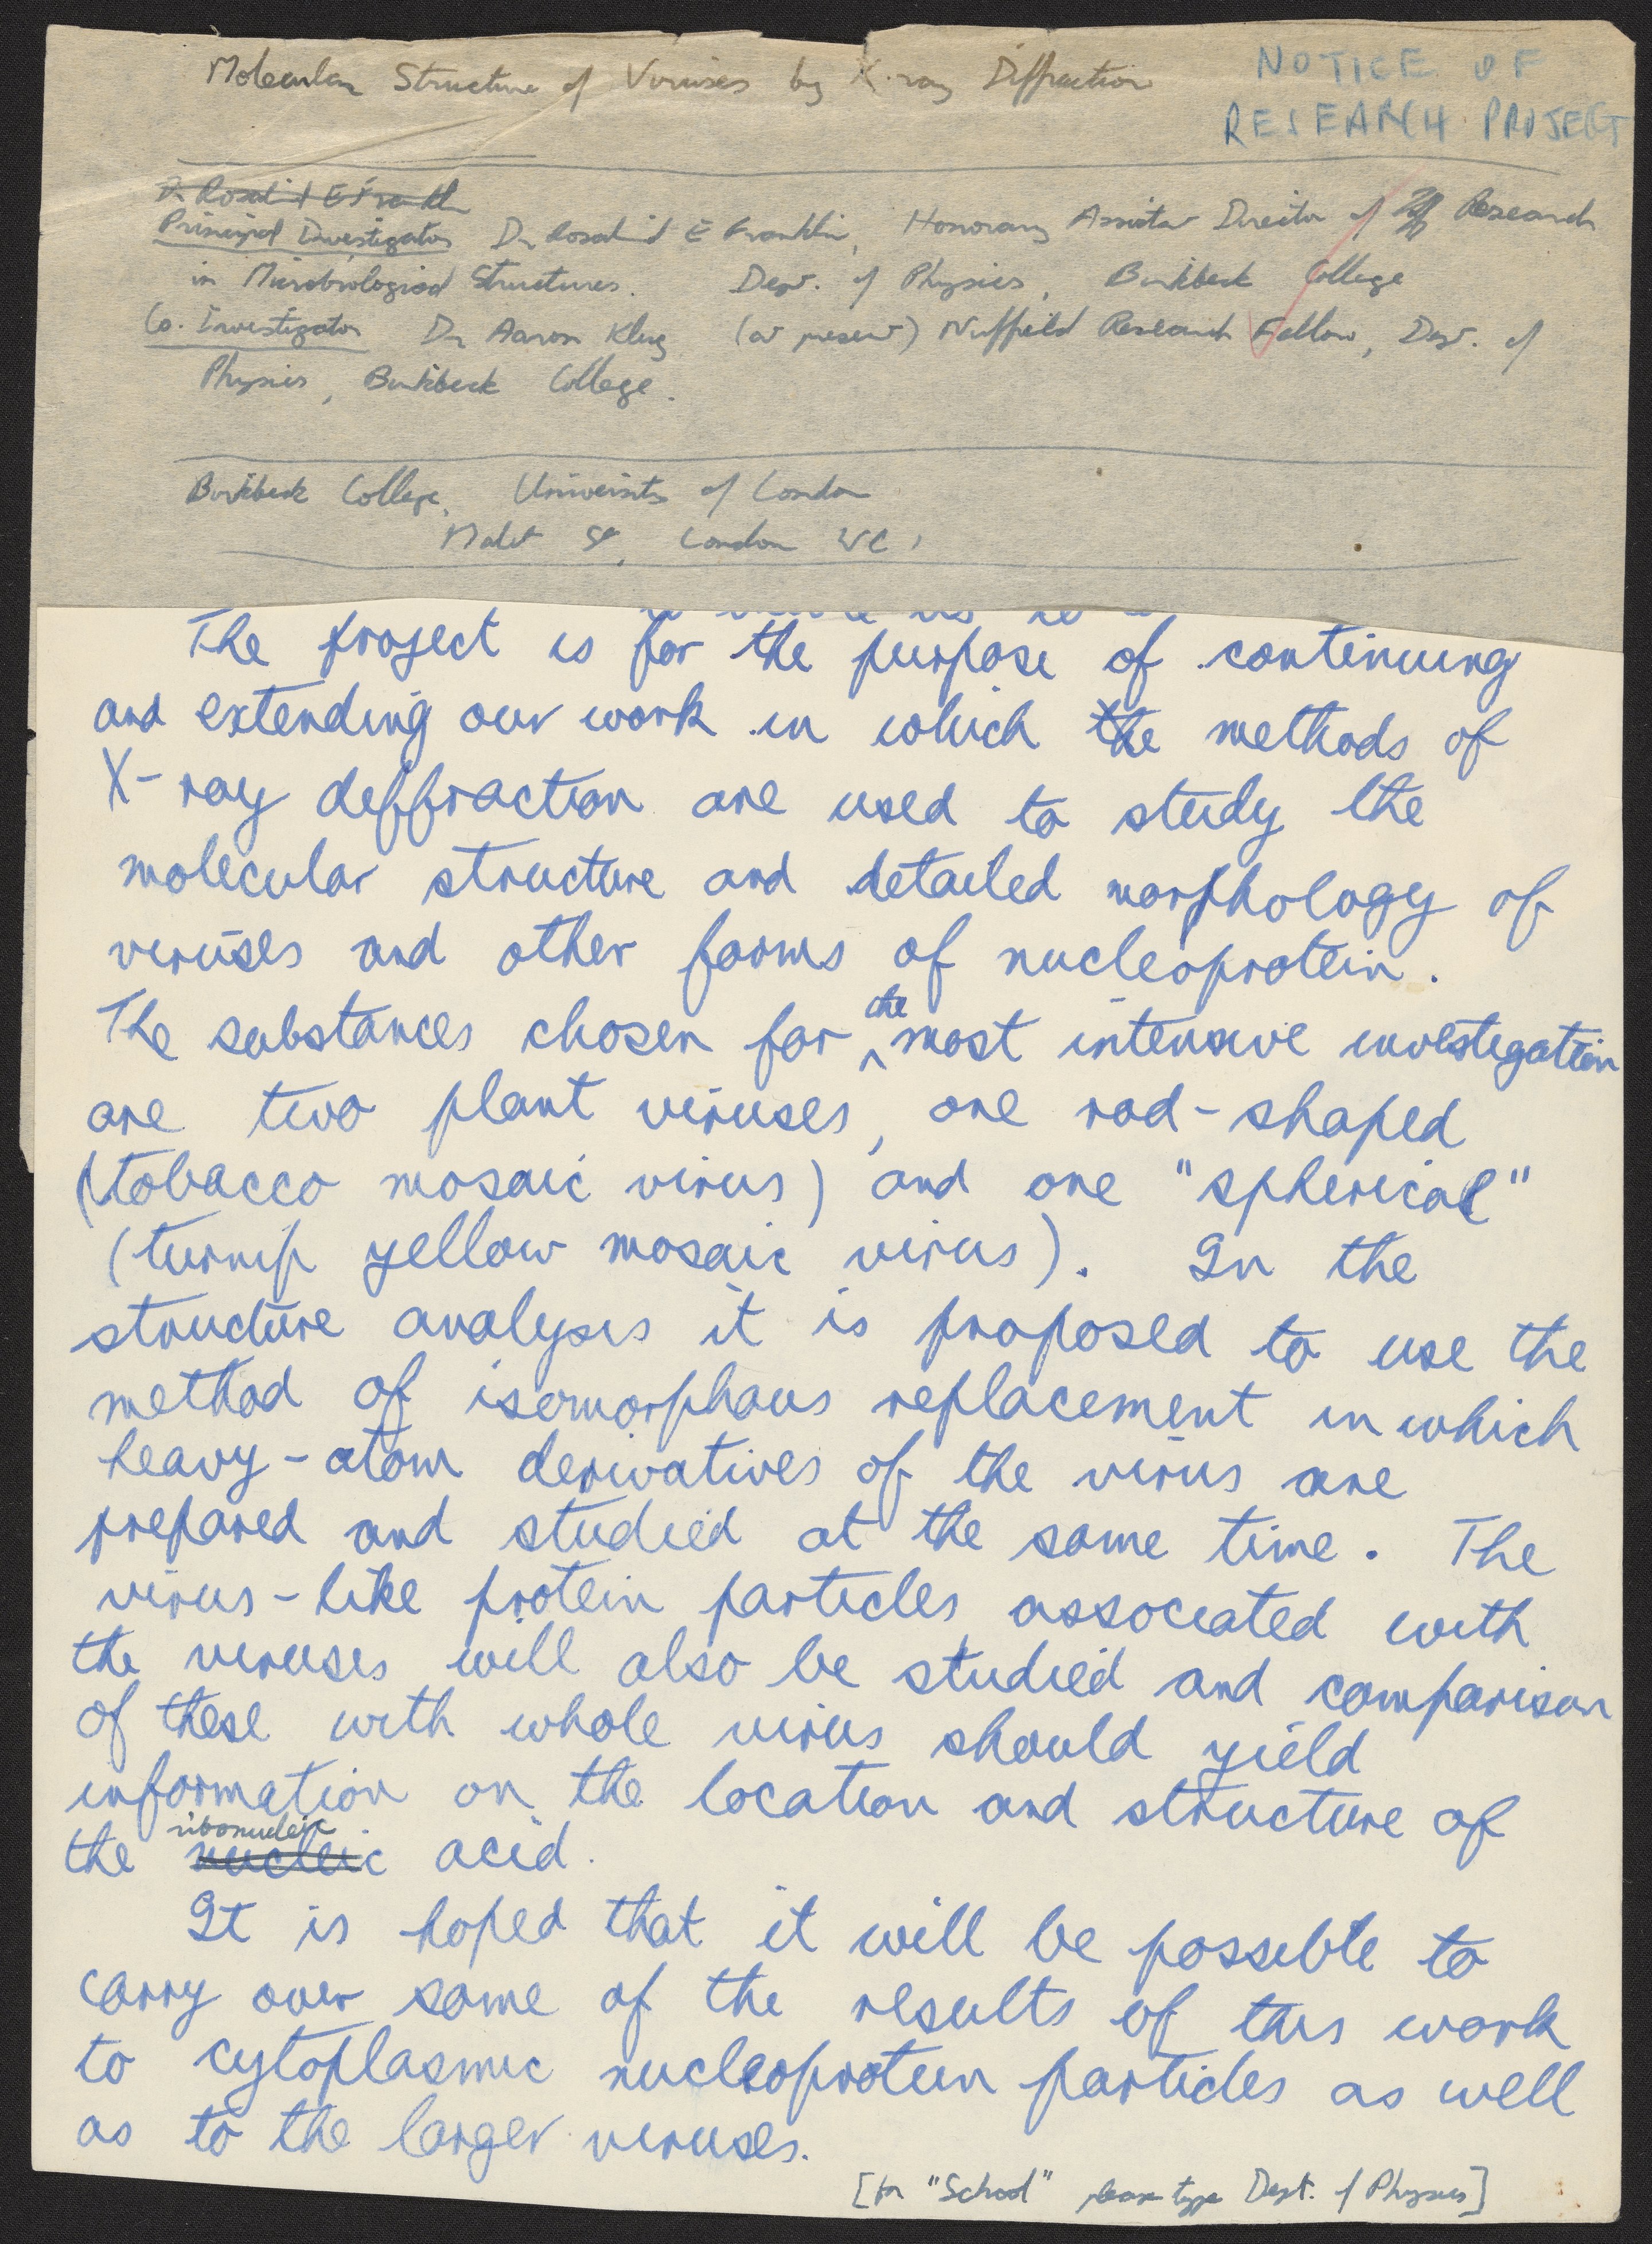 Molecular Structure of Viruses by X-ray Diffraction
NOTICE OF
RESEARCH PROJECT
Dr Rosalind E Franklin
Principal Investigator Dr Rosalind E Franklin, Honorary Assistant Director of Research
in Microbiological Structures. Dept. of Physics, Birkbeck College
Co. Investigator Dr Aaron Klug (at present) Nuffield Research Fellow, Dept. of
Physics, Birkbeck College.
Birkbeck College, University of London
Malet St, London WC1
The project is for the purpose of continuing
and extending our work in which the methods of
X-ray diffraction are used to study the
molecular structure and detailed morphology of
viruses and other forms of nucleoprotein.
The substances chosen for the most intensive investigation
are two plant viruses, one rod-shaped
(tobacco mosaic virus) and one "spherical"
(turnip yellow mosaic virus). In the
structure analysis it is proposed to use the
method of isomorphous replacement in which
heavy-atom derivatives of the virus are
prepared and studied at the same time. The
virus-like protein particles associated with
the viruses will also be studied and comparison
of these with whole virus should yield
information on the location and structure of
the nucleic ribonucleic acid.
It is hoped that it will be possible to
carry over some of the results of this work
to cytoplasmic nucleoprotein particles as well
as to the larger viruses.
[for "School" please type Dept. of Physics]